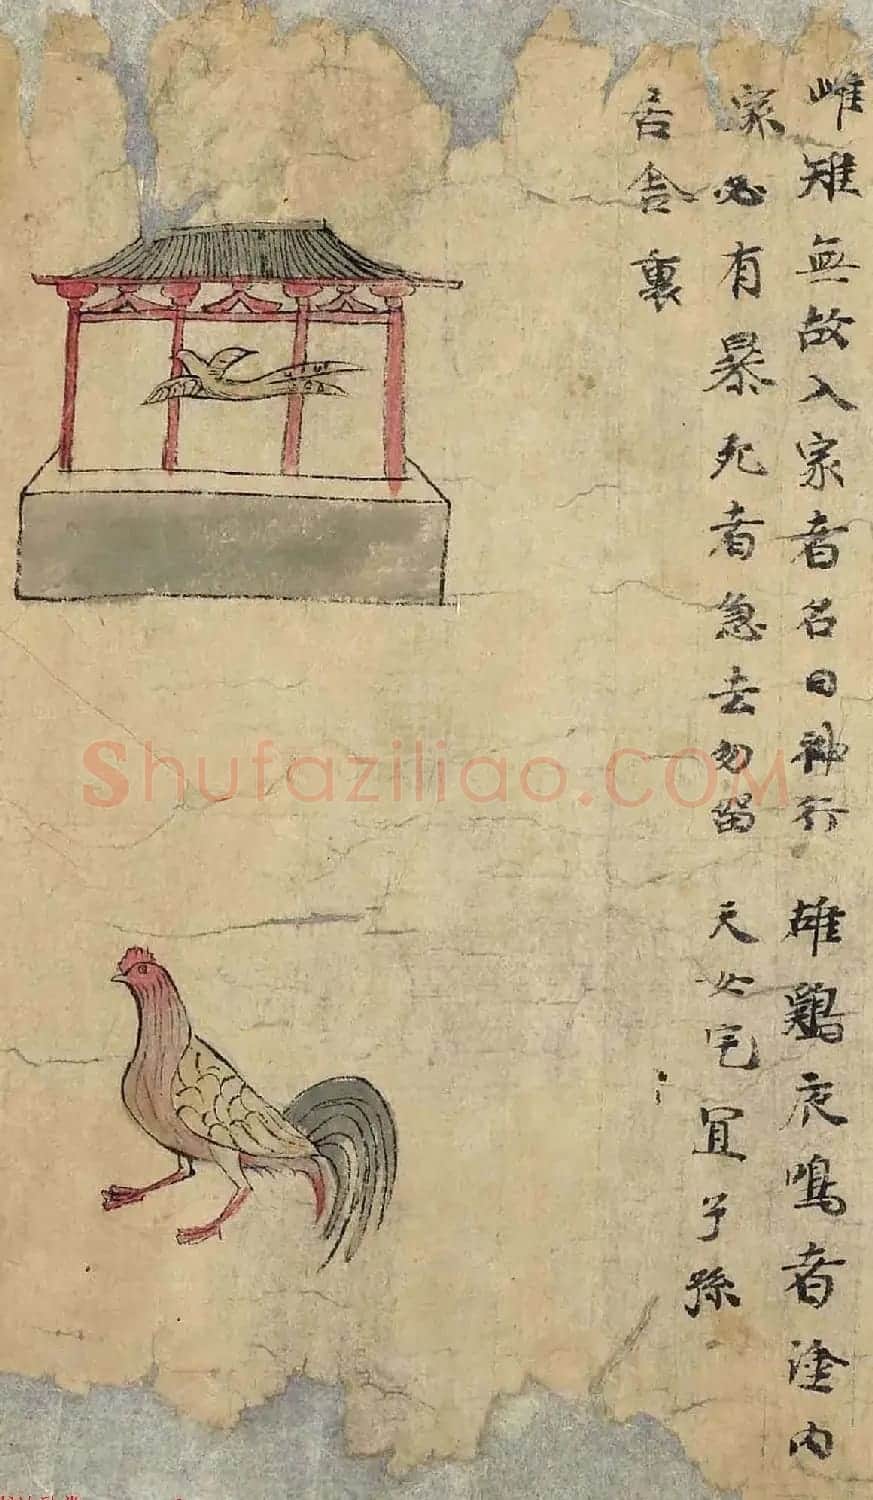 雌雉無故入家者名曰神行
家必有暴死者急去勿留
居舍裏
雄鷄夜鳴者塗内
天宅冝子孫
Shufaziliao.COM